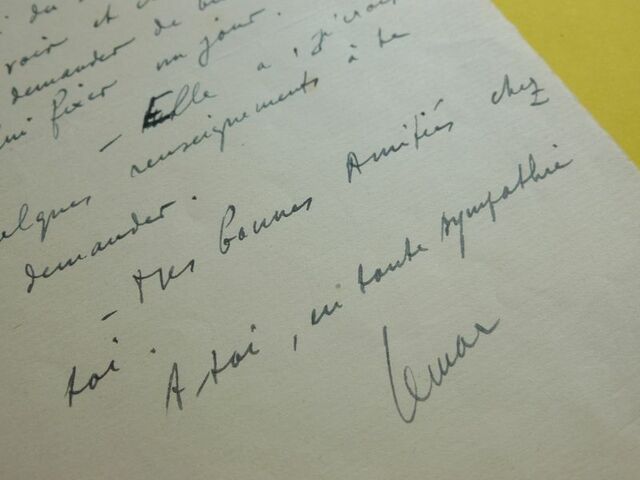 du
voir et
demander de
fixer un jour.
- Elle a, je crois
quelques renseignements à te
demander.
- Mes bonnes Amitiés chez
toi.
A toi, en toute sympathie